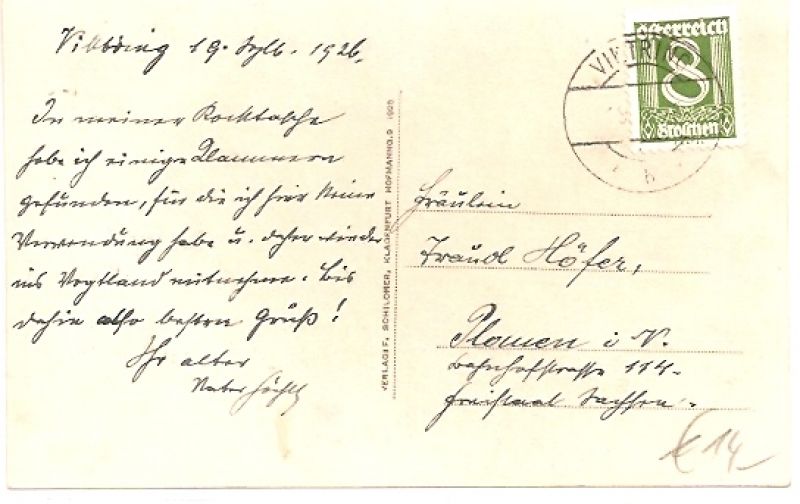 19. Sept. 1926.
In meiner Rocktasche
habe ich einige Klammern
gefunden, für die ich hier keine
Verwendung habe u. daher wieder
ins Vogtland mitnehme. Bis
dahin also besten Gruß!
Ihr alter
Vater
VERLAG F. SCHILCHER, KLAGENFURT HOFMANNG. 9 1925
Österreich
8
Groschen
VIKTRING
b
Fräulein
Traudl Höfer,
Plauen i. V.
Bahnhofstrasse 114.
Freistaat Sachsen.
€ 14,-